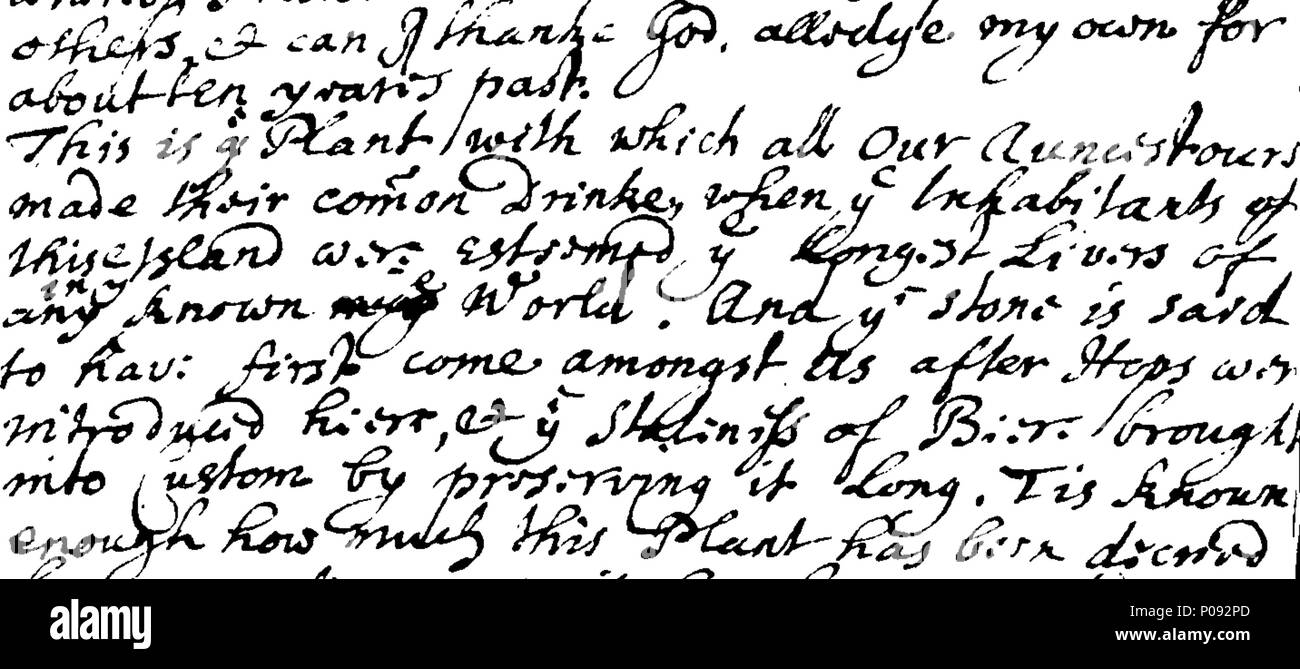 others, & can I thanke God, alledge my own for
about ten yeares past.
This is yͤ Plant with which all Our Auncestours
made their com̃on Drinke, when yͤ Inhabitants of
this Island were esteemed yͤ Longest Livers of
any known World. And yͤ stone is said
to have first come amongst us after Hops wer
introduced hiere, & yͤ Staleniss of Biere brought
into Custom by preserving it long. Tis known
enough how much this Plant has been decried
alamy
Image ID: P092PD
www.alamy.com